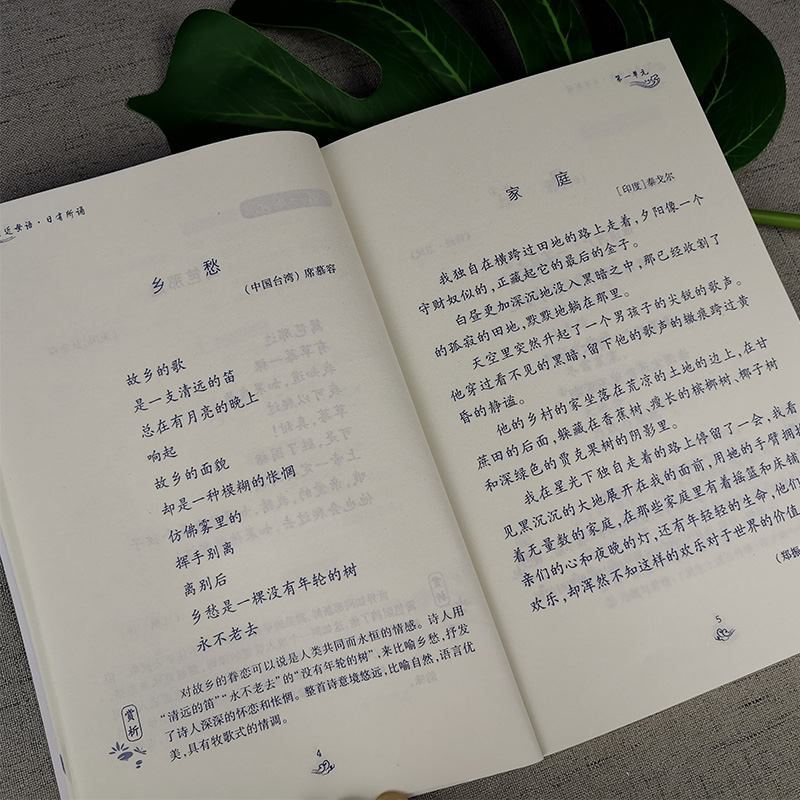 近母语·日有所诵
乡 愁
(中国台湾) 席慕容
故乡的歌
是一支清远的笛
总在有月亮的晚上
响起
故乡的面貌
却是一种模糊的怅惘
仿佛雾里的
挥手别离
离别后
乡愁是一棵没有年轮的树
永不老去
赏析
对故乡的眷恋可以说是人类共同而永恒的情感。诗人用
“清远的笛”“永不老去”的“没有年轮的树”,来比喻乡愁,抒发
了诗人深深的怀恋和怅惘。整首诗意境悠远,比喻自然,语言优
美,具有牧歌式的情调。
4
第一单元
家 庭
[印度]泰戈尔
我独自在横跨过田地的路上走着,夕阳像一个
守财奴似的,正藏起它的最后的金子。
白昼更加深沉地没入黑暗之中,那已经收割了
的孤寂的田地,默默地躺在那里。
天空里突然升起了一个男孩子的尖锐的歌声。
他穿过看不见的黑暗,留下他的歌声的辙痕跨过黄
昏的静谧。
他的乡村的家坐落在荒凉的土地的边上,在甘
蔗田的后面,躲藏在香蕉树、瘦长的槟榔树、椰子树
和深绿色的贾克果树的阴影里。
我在星光下独自走着的路上停留了一会,我看
见黑沉沉的大地展开在我的面前,用她的手臂拥抱
着无量数的家庭,在那些家庭里有着摇篮和床铺
亲们的心和夜晚的灯,还有年轻轻的生命,他们
欢乐,却浑然不知这样的欢乐对于世界的价值
(郑振
5